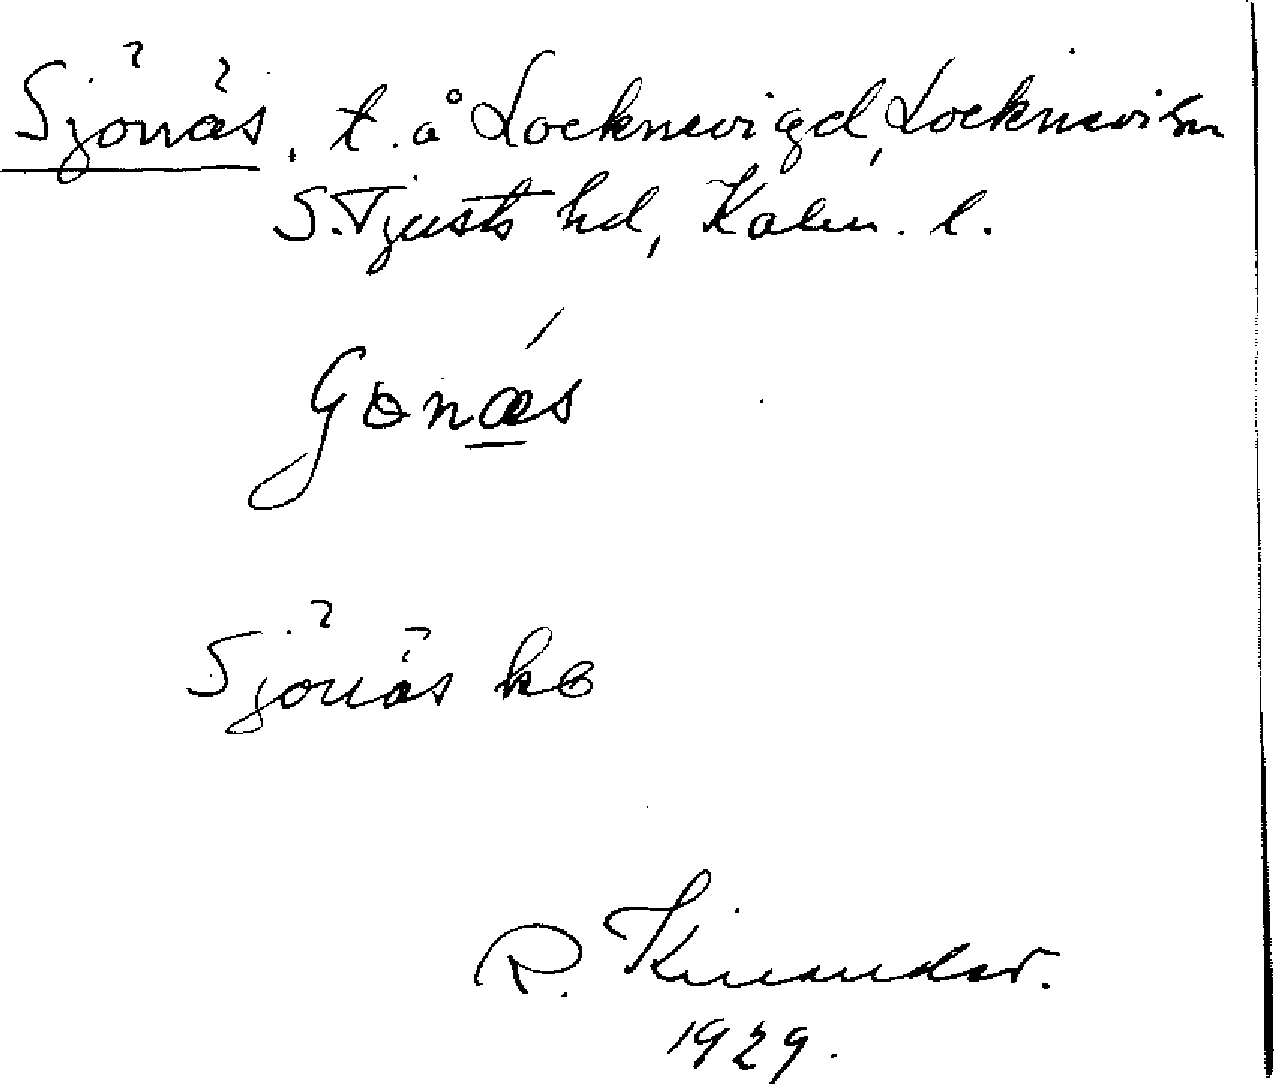 Sjönäs, t. å Locknevi gd, Locknevi sn
S. Tjusts hd, Kalm. l.
Gɵnæs
Sjönäs kɞ
R. Kinander.
1929.